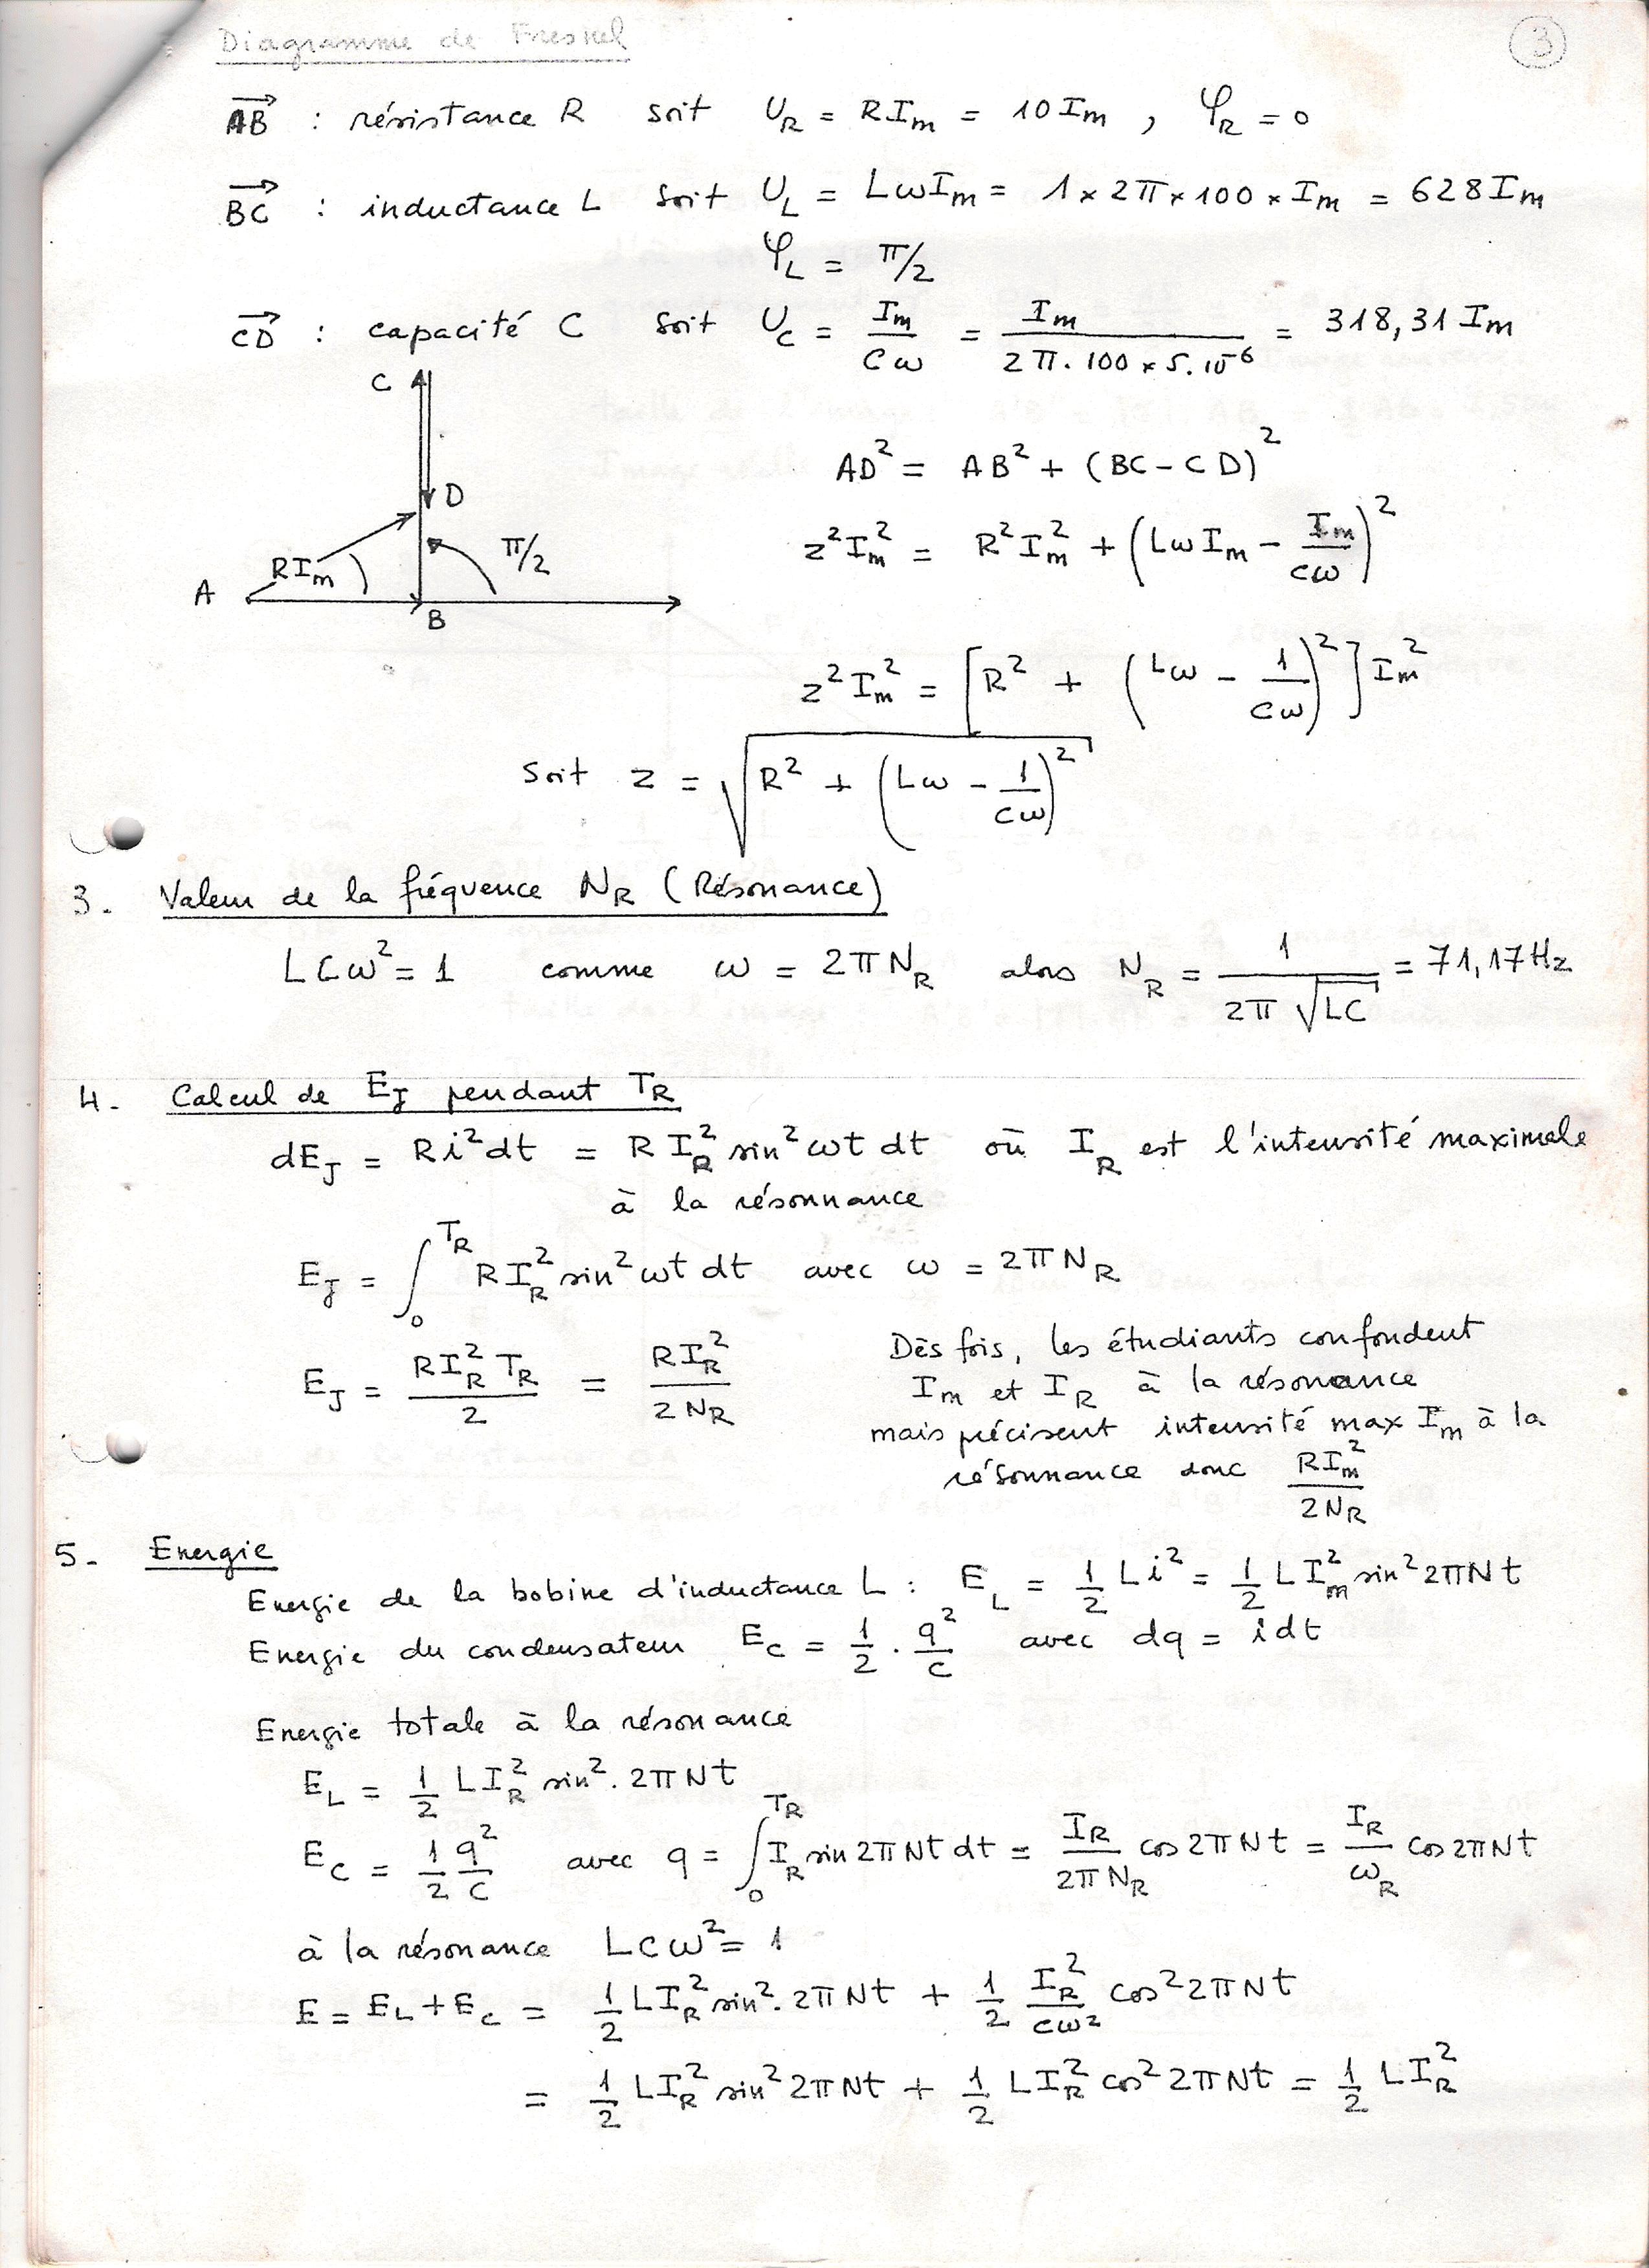 Diagramme de Fresnel
3
AB : résistance R soit U_R = RI_m = 10 I_m , φ_R = 0
BC : inductance L soit U_L = LωI_m = 1 × 2π × 100 × I_m = 628 I_m
φ_L = π/2
CD : capacité C soit U_C = I_m / Cω = I_m / 2π.100 × 5.10⁻⁶ = 318,31 I_m
C
D
π/2
RI_m
A
B
AD² = AB² + (BC - CD)²
z²I_m² = R²I_m² + (LωI_m - I_m/Cω)²
z²I_m² = [R² + (Lω - 1/Cω)²] I_m²
Soit z = √(R² + (Lω - 1/Cω)²)
3. Valeur de la fréquence N_R (Résonance)
LCω² = 1 comme ω = 2πN_R alors N_R = 1 / 2π√LC = 71,17 Hz
4. Calcul de E_J pendant T_R
dE_J = Ri²dt = R I_R² sin² ωt dt où I_R est l'intensité maximale
à la résonnance
E_J = ∫₀^T_R RI_R² sin² ωt dt avec ω = 2πN_R
E_J = RI_R² T_R / 2 = RI_R² / 2N_R
Dès fois, les étudiants confondent
I_m et I_R à la résonance
mais précisent intensité max I_m à la
résonnance donc RI_m² / 2N_R
5. Energie
Energie de la bobine d'inductance L : E_L = 1/2 Li² = 1/2 LI_m² sin² 2πNt
Energie du condensateur E_C = 1/2 . q²/C avec dq = idt
Energie totale à la résonance
E_L = 1/2 LI_R² sin². 2πNt
E_C = 1/2 q²/C avec q = ∫₀^T_R I_R sin 2πNt dt = I_R / 2πN_R cos 2πNt = I_R / ω_R cos 2πNt
à la résonance LCω² = 1
E = E_L + E_C = 1/2 LI_R² sin². 2πNt + 1/2 I_R² / Cω² cos² 2πNt
= 1/2 LI_R² sin² 2πNt + 1/2 LI_R² cos² 2πNt = 1/2 LI_R²